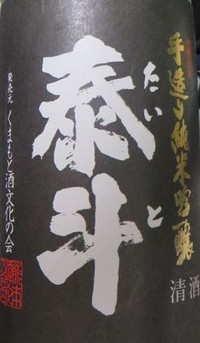 手造り純米吟醸
清酒
泰斗
たいと
発売元 くまもと酒文化の会